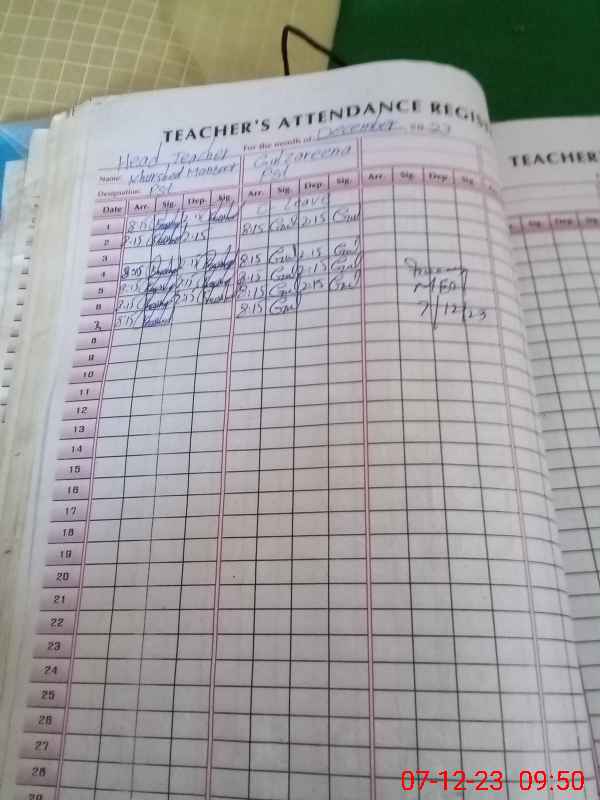 TEACHER'S ATTENDANCE REGIS
For the month of December 2023
Head Teacher
Name: Khurshed Gulzareena
Designation: Pst Pst
Date Arr. Sig. Dep. Sig. Arr. Sig. Dep. Sig. Arr. Sig. Dep. Sig.
1 8:15 Leave
2 8:15 2:15 8:15 Gul 2:15 Gul
3
4 8:15 Gul 2:15 Gul
5 8:15 2:15 8:15 Gul 2:15 Gul
6 8:15 2:15 8:15 Gul 2:15 Gul
7 8:15 8:15 Gul
7/12/23
8
9
10
11
12
13
14
15
16
17
18
19
20
21
22
23
24
25
26
27
28
29
TEACHER'
Sig. Dep Sig
07-12-23 09:50